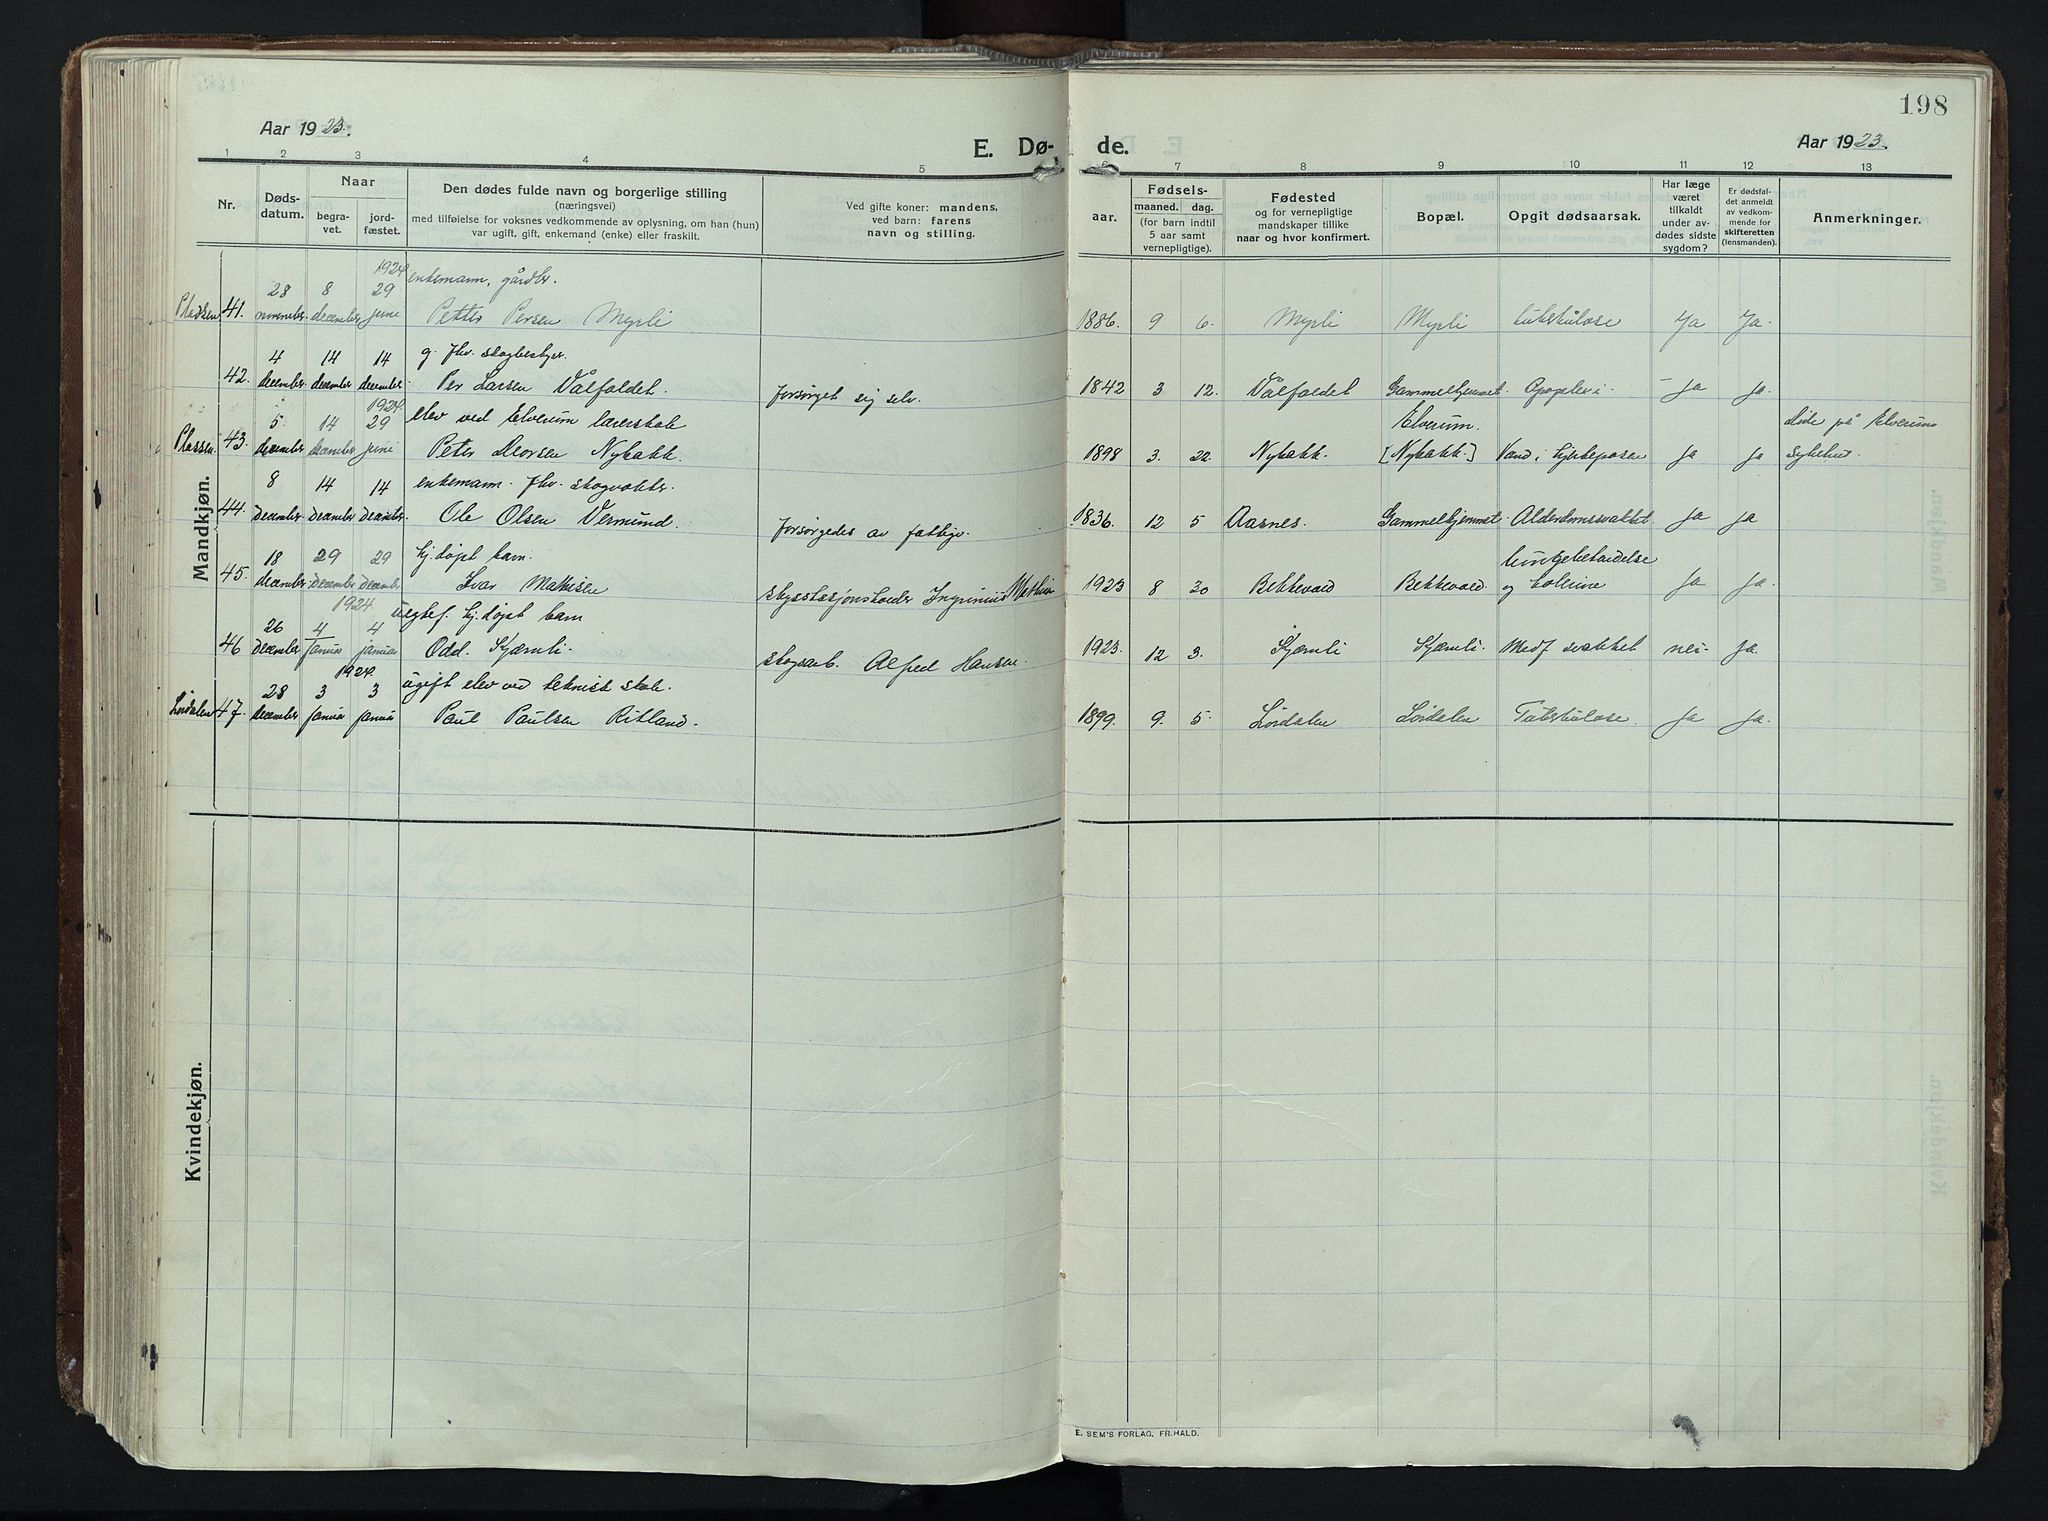 198
Aar 1923.
E. Dø-
de.
Aar 1923.
1 2 3 4 5 6 7 8 9 10 11 12 13
Nr.
Døds-
datum.
Naar
begra-
vet.
jord-
fæstet.
Den dødes fulde navn og borgerlige stilling
(næringsvei)
med tilføielse for voksnes vedkommende av oplysning, om han (hun)
var ugift, gift, enkemand (enke) eller fraskilt.
Ved gifte koner: mandens,
ved barn: farens
navn og stilling.
aar.
Fødsels-
maaned. dag.
(for barn indtil
5 aar samt
vernepligtige).
Fødested
og for vernepligtige
mandskaper tillike
naar og hvor konfirmert.
Bopæl.
Opgit dødsaarsak.
Har læge
været
tilkaldt
under av-
dødes sidste
sygdom?
Er dødsfal-
det anmeldt
av vedkom-
mende for
skifteretten
(lensmanden).
Anmerkninger.
Mandkjøn.
1924
28 8 29 enkemann, gårdbr.
41. november december juni Petter Persen Myrli 1886. 9 6. Myrli Myrli tuberkulose Ja Ja.
4 14 14 g. fhv. skogbestyr.
42. december december december Per Larsen Vålfaldet. forsørget sig selv. 1842 3 12. Vålfaldet Gammelhjemmet. Apoplexi - ja ja.
1924.
5 14 29 elev ved Elverum lærerskole Elverum. døde på Elverums
43. december december juni Peter Nybakk. 1898 3. 22. Nybakk. [Nybakk.] Vand i ja ja sykehus.
8 14 14 enkemann. fhv. skogvokter.
44. december december december Ole Olsen Vermund. forsørgedes av fattigv. 1836. 12 5 Aasnes. Gammelhjemmet. Alderdomssvakhet. ja ja
18 29 29 hj.døpt barn. lungebetændelse
45. december december december Ivar Mathisen skysstasjonsholder Ingvinius Mathisen 1923 8 30 Bekkevold Bekkevold. og kolerine ja ja.
1924
26 4 4 uegtef. hj.døpt barn
46 december januar januar Odd. Kjærnli. skogsarb. Alfred Hansen. 1923. 12 3. Kjærnli Kjærnli. Medf. svakhet nei- ja.
1924.
28 3 3 ugift elev ved teknisk skole.
Lørdalen 47. december januar januar Paul Paulsen Ritland. 1899. 9. 5. Lørdalen Lørdalen Tuberkulose. ja ja.
Kvindekjøn.
E. SEM'S FORLAG, FR.HALD.